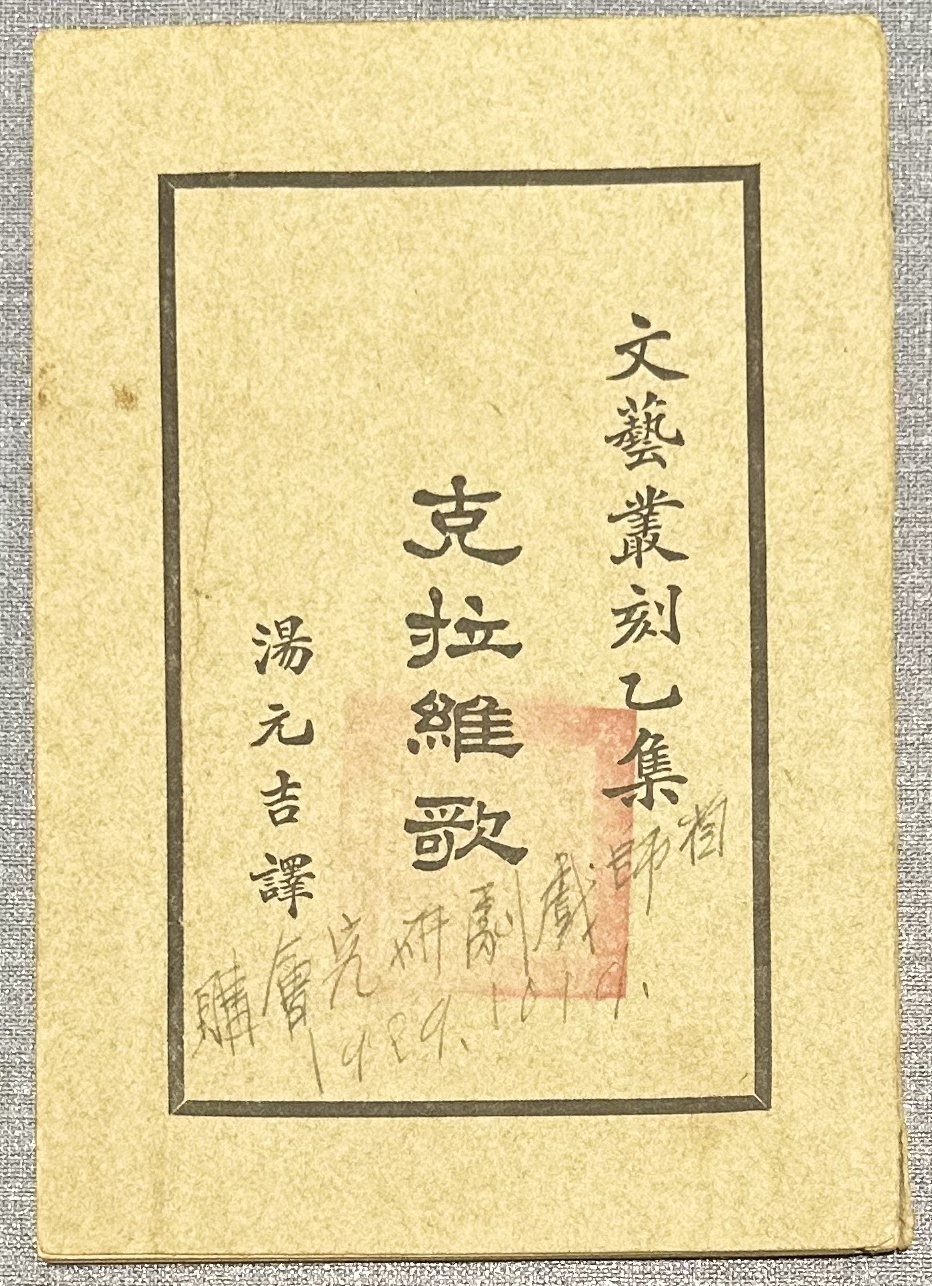 文藝叢刻乙集
克拉維歌
湯元吉譯
師戲劇研究會購
1929.1019.